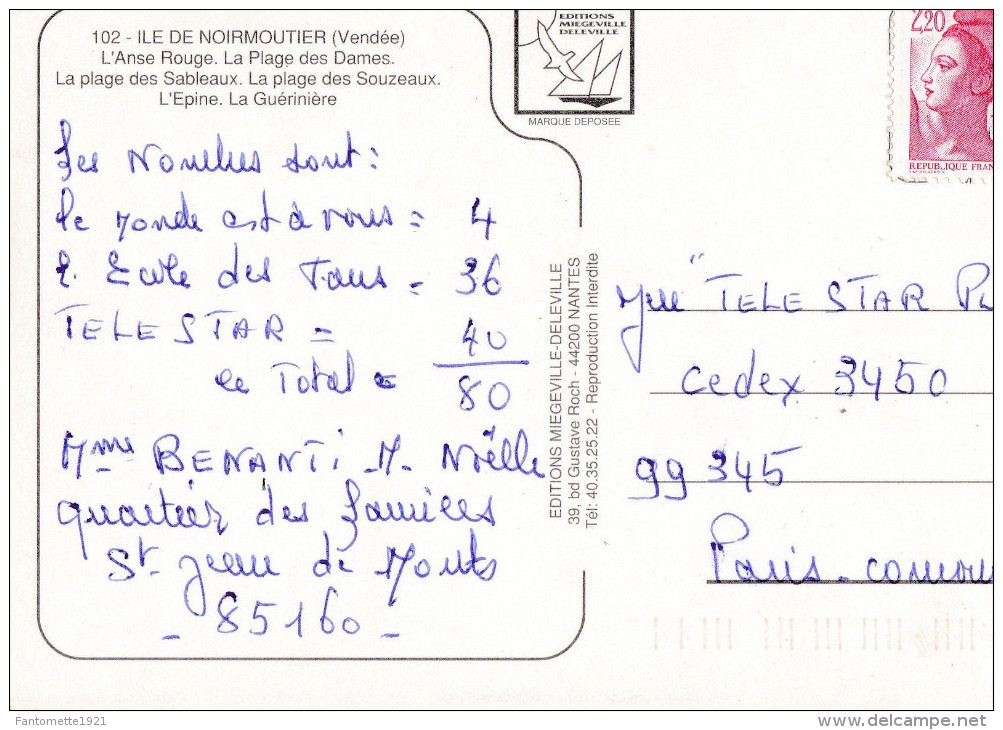 102 - ILE DE NOIRMOUTIER (Vendée)
L'Anse Rouge. La Plage des Dames.
La plage des Sableaux. La plage des Souzeaux.
L'Epine. La Guérinière
EDITIONS
MIEGEVILLE
DELEVILLE
MARQUE DEPOSEE
2,20
REPUBLIQUE FRAN
Les Nombres sont :
Le Monde est à vous = 4
L'Ecole des Fans = 36
TELE STAR = 40
Total = 80
Mme BENANTI M. Noëlle
quartier des familles
St Jean de Monts
- 85160 -
EDITIONS MIEGEVILLE-DELEVILLE
39, bd Gustave Roch - 44200 NANTES
Tél: 40.35.25.22 - Reproduction Interdite
Jeu "TELE STAR PL
Cedex 3450
99 345
Paris - concou
Fantomette1921
delcampe.net